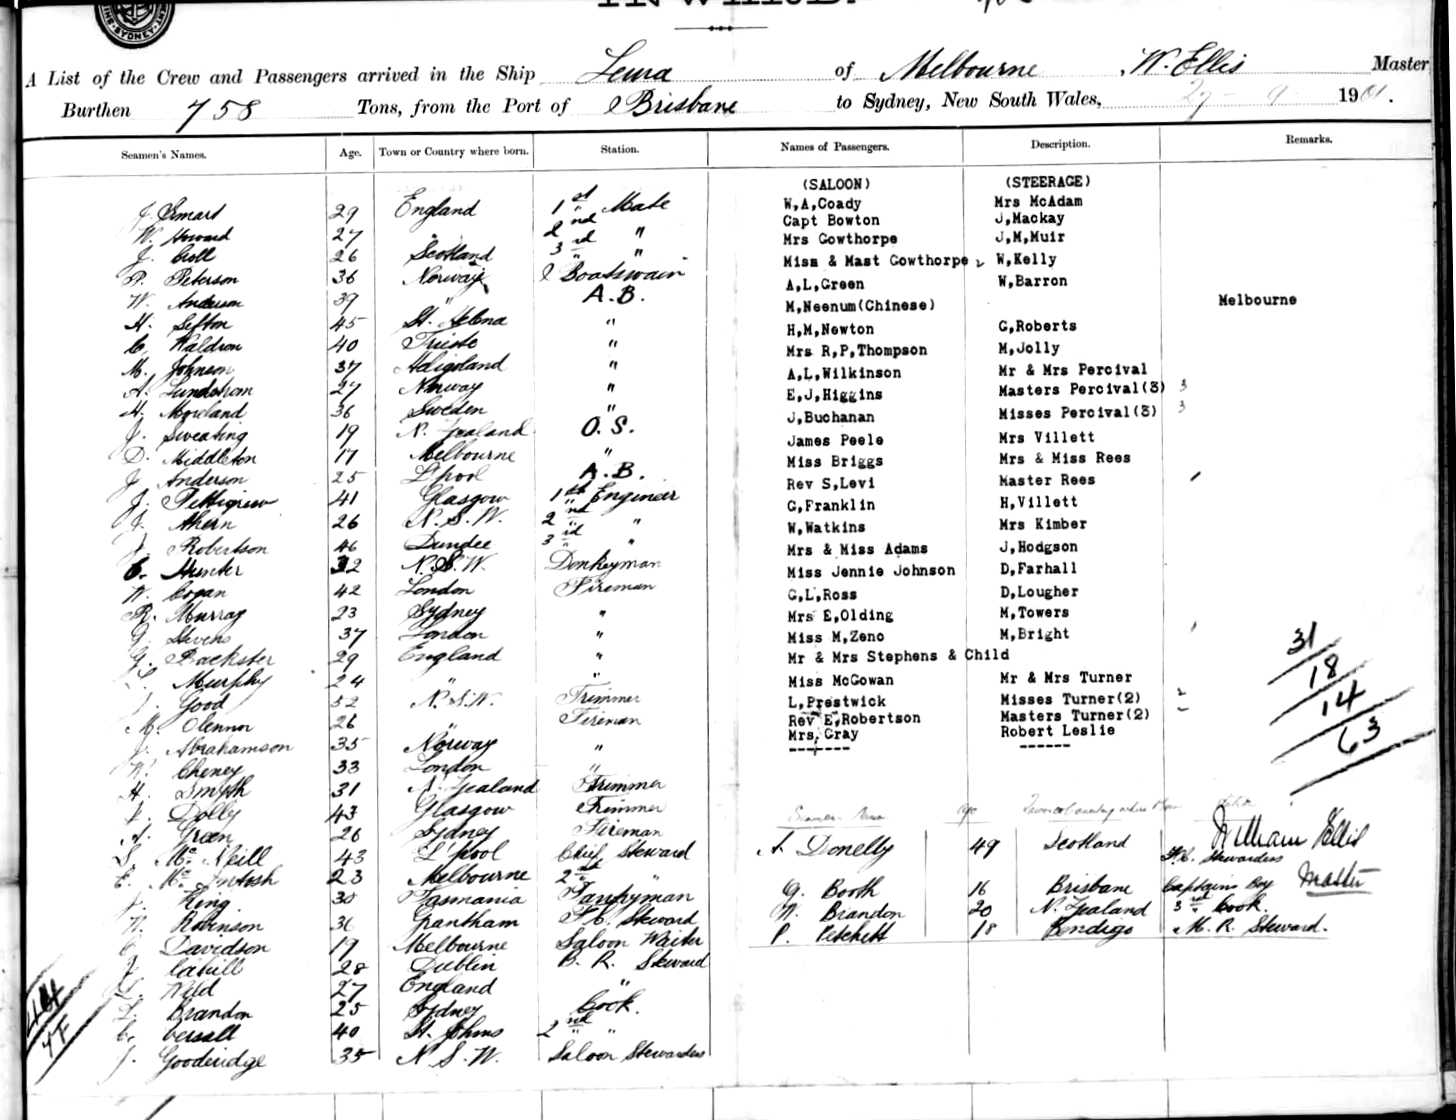 A List of the Crew and Passengers arrived in the Ship Leura of Melbourne, W. Ellis Master
Burthen 758 Tons, from the Port of Brisbane to Sydney, New South Wales, 27 - 9 1901.
Seamen's Names. Age. Town or Country where born. Station. Names of Passengers. Description. Remarks.
(SALOON) (STEERAGE)
J. Smart 29 England 1st Mate
W. Howard 27 " 2nd "
J. 26 Scotland 3rd "
P. Peterson 36 Norway Boatswain
W. Anderson 39 " A.B.
H. Sefton 45 St. Helena "
C. Waldron 40 Trieste "
M. Johnson 37 "
A. Lundstrom 27 Norway "
H. Moreland 36 Sweden "
J. Sweating 19 N. Zealand O.S.
D. Middleton 17 Melbourne "
J. Anderson 25 L'pool A.B.
J. Pettigrew 41 Glasgow 1st Engineer
J. Ahern 26 N.S.W. 2nd "
J. Robertson 46 Dundee 3rd "
C. Hunter 32 N.S.W. Donkeyman
W. Cogan 42 London Fireman
R. Murray 23 Sydney "
G. Stevens 37 London "
G. Backster 29 England "
Murphy 24 " "
Good 52 N.S.W. Trimmer
M. Olennor 26 " Fireman
J. Abrahamson 35 Norway "
W. Cheney 33 London "
H. Smyth 31 N. Zealand Trimmer
Dolly 43 Glasgow Trimmer
Green 26 Sydney Fireman
McNeill 43 L'pool Chief Steward
E. McIntosh 23 Melbourne 2nd "
J. King 30 Tasmania Pantryman
N. Robinson 36 Grantham F.C. Steward
C. Davidson 19 Melbourne Saloon Waiter
Cahill 28 Dublin B. R. Steward
Wild 27 England "
Brandon 25 Sydney Cook.
C. 40 St. Johns 2nd "
J. Gooderidge 35 N.S.W. Saloon Stewardess
W,A,Coady Mrs McAdam
Capt Bowton J,Mackay
Mrs Gowthorpe J,M,Muir
Miss & Mast Gowthorpe 2 W,Kelly
A,L,Green W,Barron
M,Neenum(Chinese) Melbourne
H,M,Newton G,Roberts
Mrs R,P,Thompson M,Jolly
A,L,Wilkinson Mr & Mrs Percival
E,J,Higgins Masters Percival(3) 3
J,Buchanan Misses Percival(3) 3
James Peele Mrs Villett
Miss Briggs Mrs & Miss Rees
Rev S,Levi Master Rees
G,Franklin H,Villett
W,Watkins Mrs Kimber
Mrs & Miss Adams J,Hodgson
Miss Jennie Johnson D,Farhall
G,L,Ross D,Lougher
Mrs E,Olding M,Towers
Miss M,Zeno M,Bright
Mr & Mrs Stephens & Child
Miss McGowan Mr & Mrs Turner
L,Prestwick Misses Turner(2) 2
Rev E,Robertson Masters Turner(2)
Mrs, Gray Robert Leslie
31
18
14
63
A. Donelly 49 Scotland F.C. Stewardess
William Ellis
Master
G. Booth 16 Brisbane Captains Boy
W. Brandon 20 N. Zealand 3rd Cook.
P. Petchett 18 Bendigo M. R. Steward.